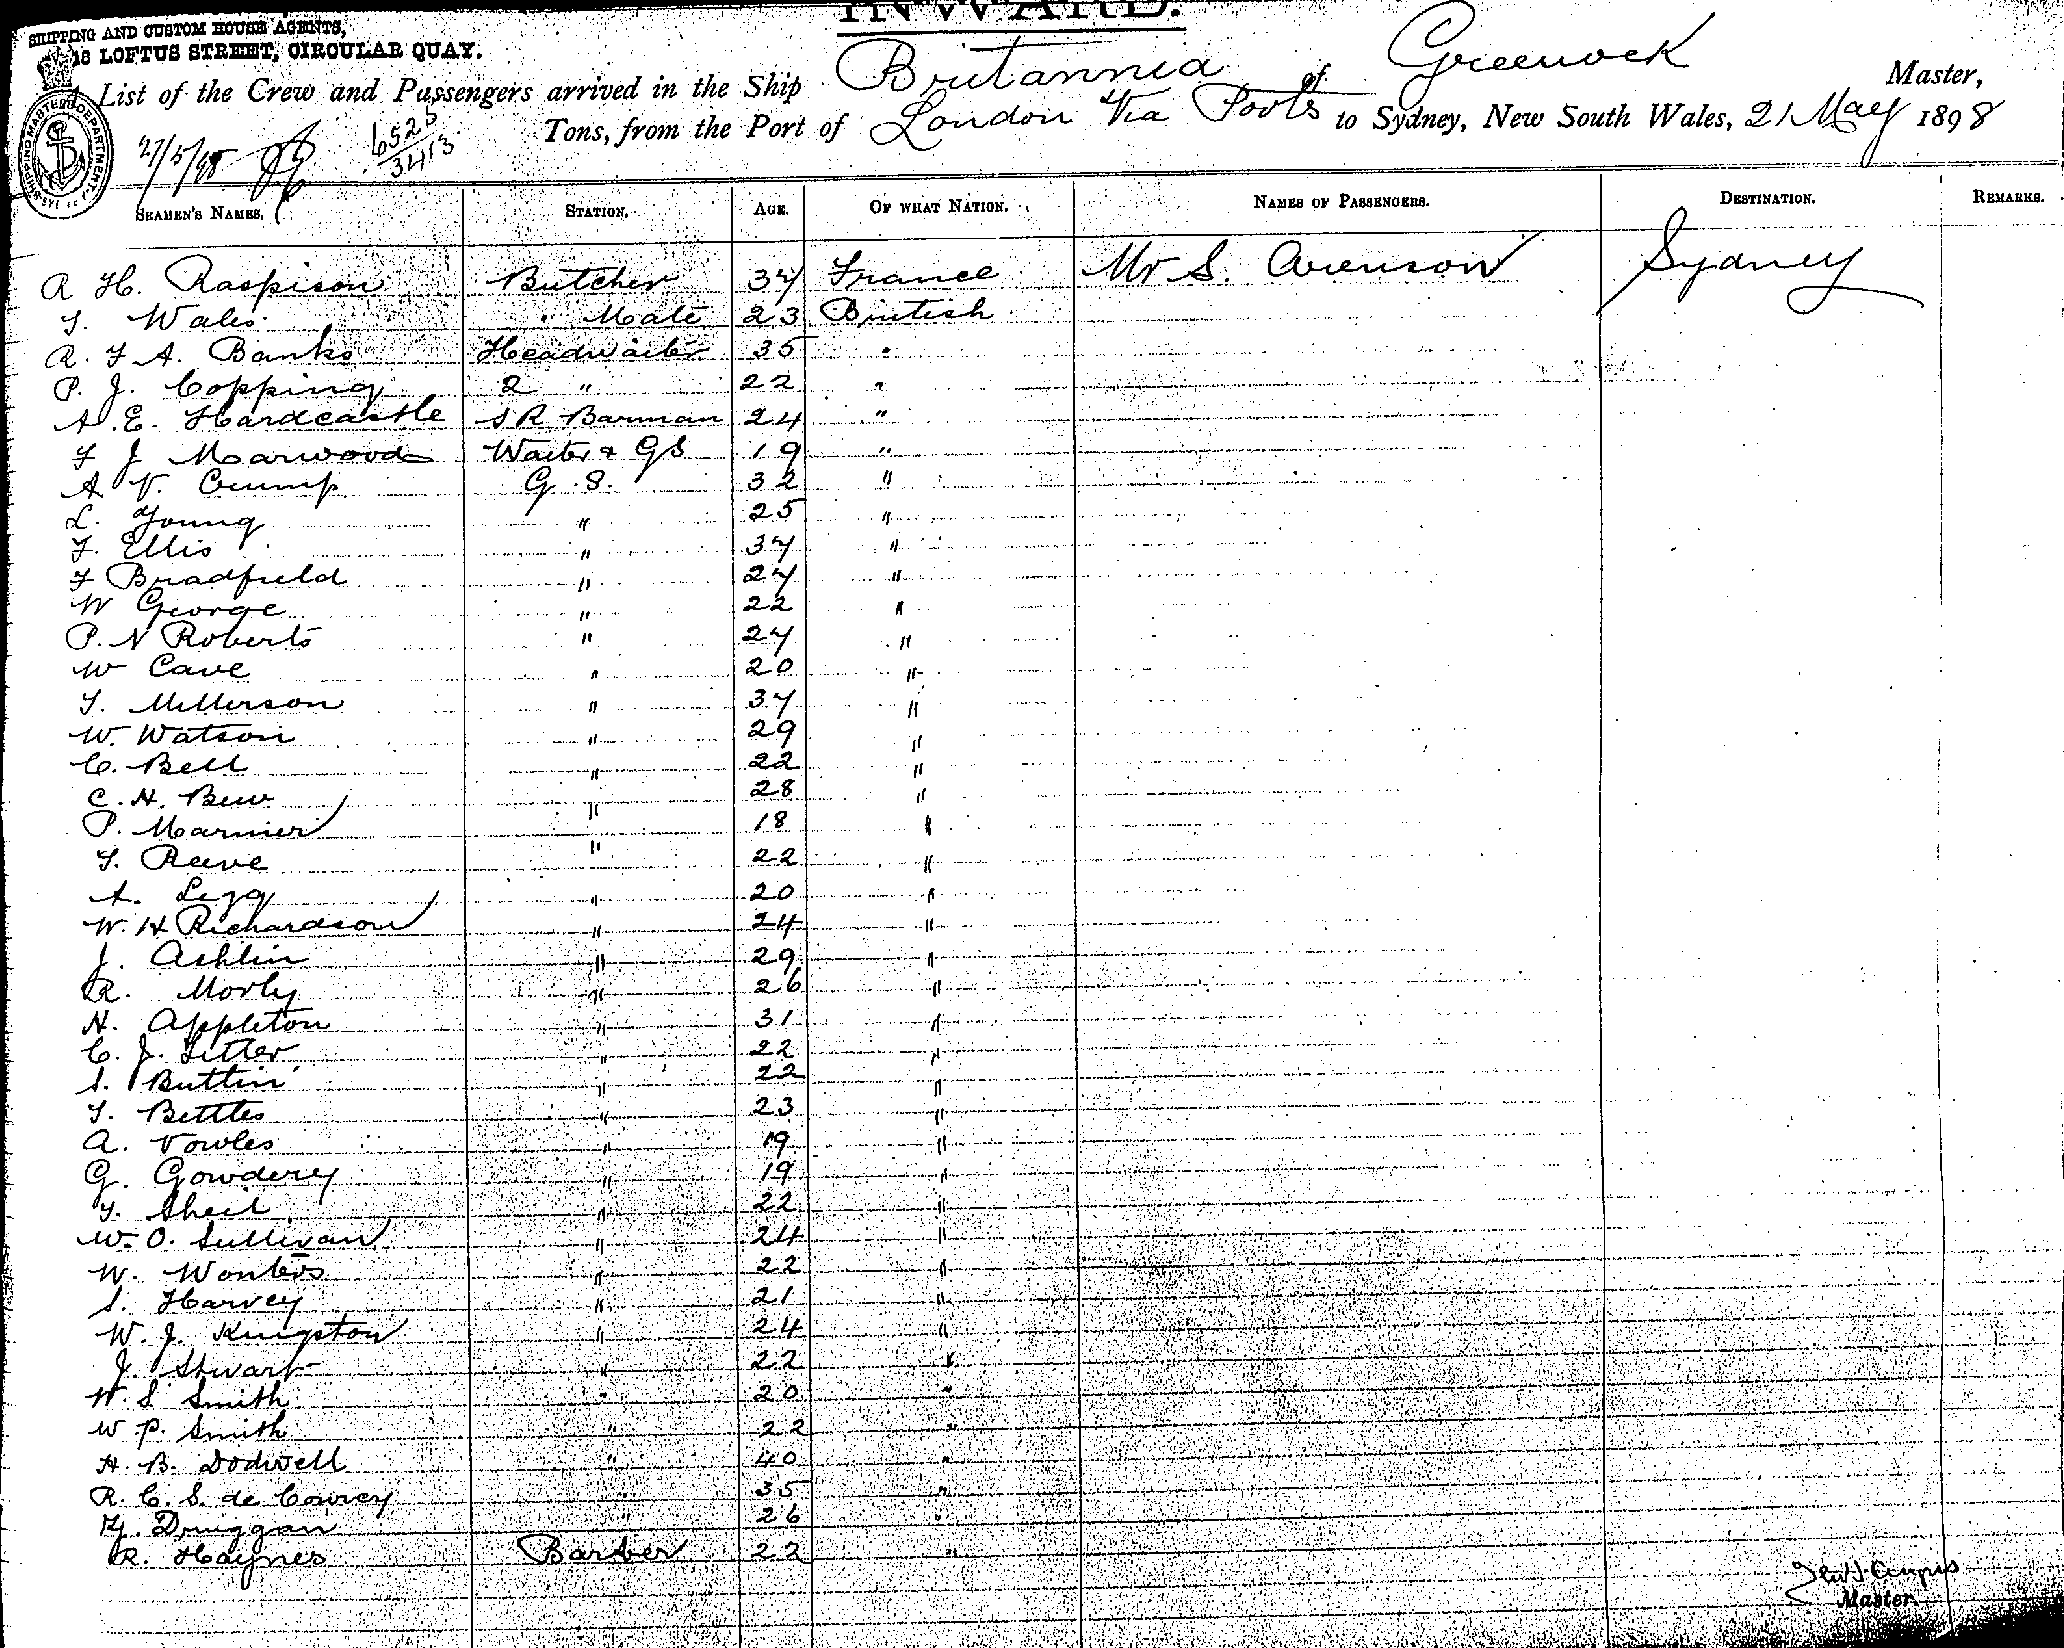 INWARD.
SHIPPING AND CUSTOM HOUSE AGENTS,
18 LOFTUS STREET, CIRCULAR QUAY.
A List of the Crew and Passengers arrived in the Ship Britannia of Greenock Master,
Tons, from the Port of London Via Ports to Sydney, New South Wales, 21 May 1898
27/5/98 6525
3413
SHIPPING MASTER'S DEPARTMENT
SEAMEN'S NAMES. STATION. AGE. OF WHAT NATION. NAMES OF PASSENGERS. DESTINATION. REMARKS.
A H. Raspison Butcher 37 France Mr S. Arenson Sydney
T. Wales " Mate 23 British
A. F A. Banks Headwaiter 35 "
P. J. Copping 2 " 22 "
A. E. Hardcastle S R Barman 24 "
F J Marwood Waiter & GS 19 "
A V. Crump G. S. 32 "
L. Young " 25 "
F. Ellis " 37 "
F Bradfield " 27 "
W George " 22 "
P. N Roberts " 27 "
W Cave " 20 "
T. Millerson " 37 "
W. Watson " 29 "
C. Bell " 22 "
C. H. Bew " 28 "
P. Marnier " 18 "
F. Reeve " 22 "
A. Legg " 20 "
W. H Richardson " 24 "
J. Ashlin " 29 "
R. Morly " 26 "
H. Appleton " 31 "
C. J. Sitter " 22 "
S. Buttin " 22 "
T. Bettles " 23 "
A. Vowles " 19 "
G. Gowdery " 19 "
T. Sheil " 22 "
W. O. Sullivan " 24 "
W. Wonters " 22 "
S. Harvey " 21 "
W. J. Kingston " 24 "
J. Stewart " 22 "
W. S Smith " 20 "
W. P. Smith " 22 "
H. B. Dodwell " 40 "
R. C. S. de Courcy " 35 "
H. Druggan " 26 "
R. Haynes Barber 22 "
Angus
Master